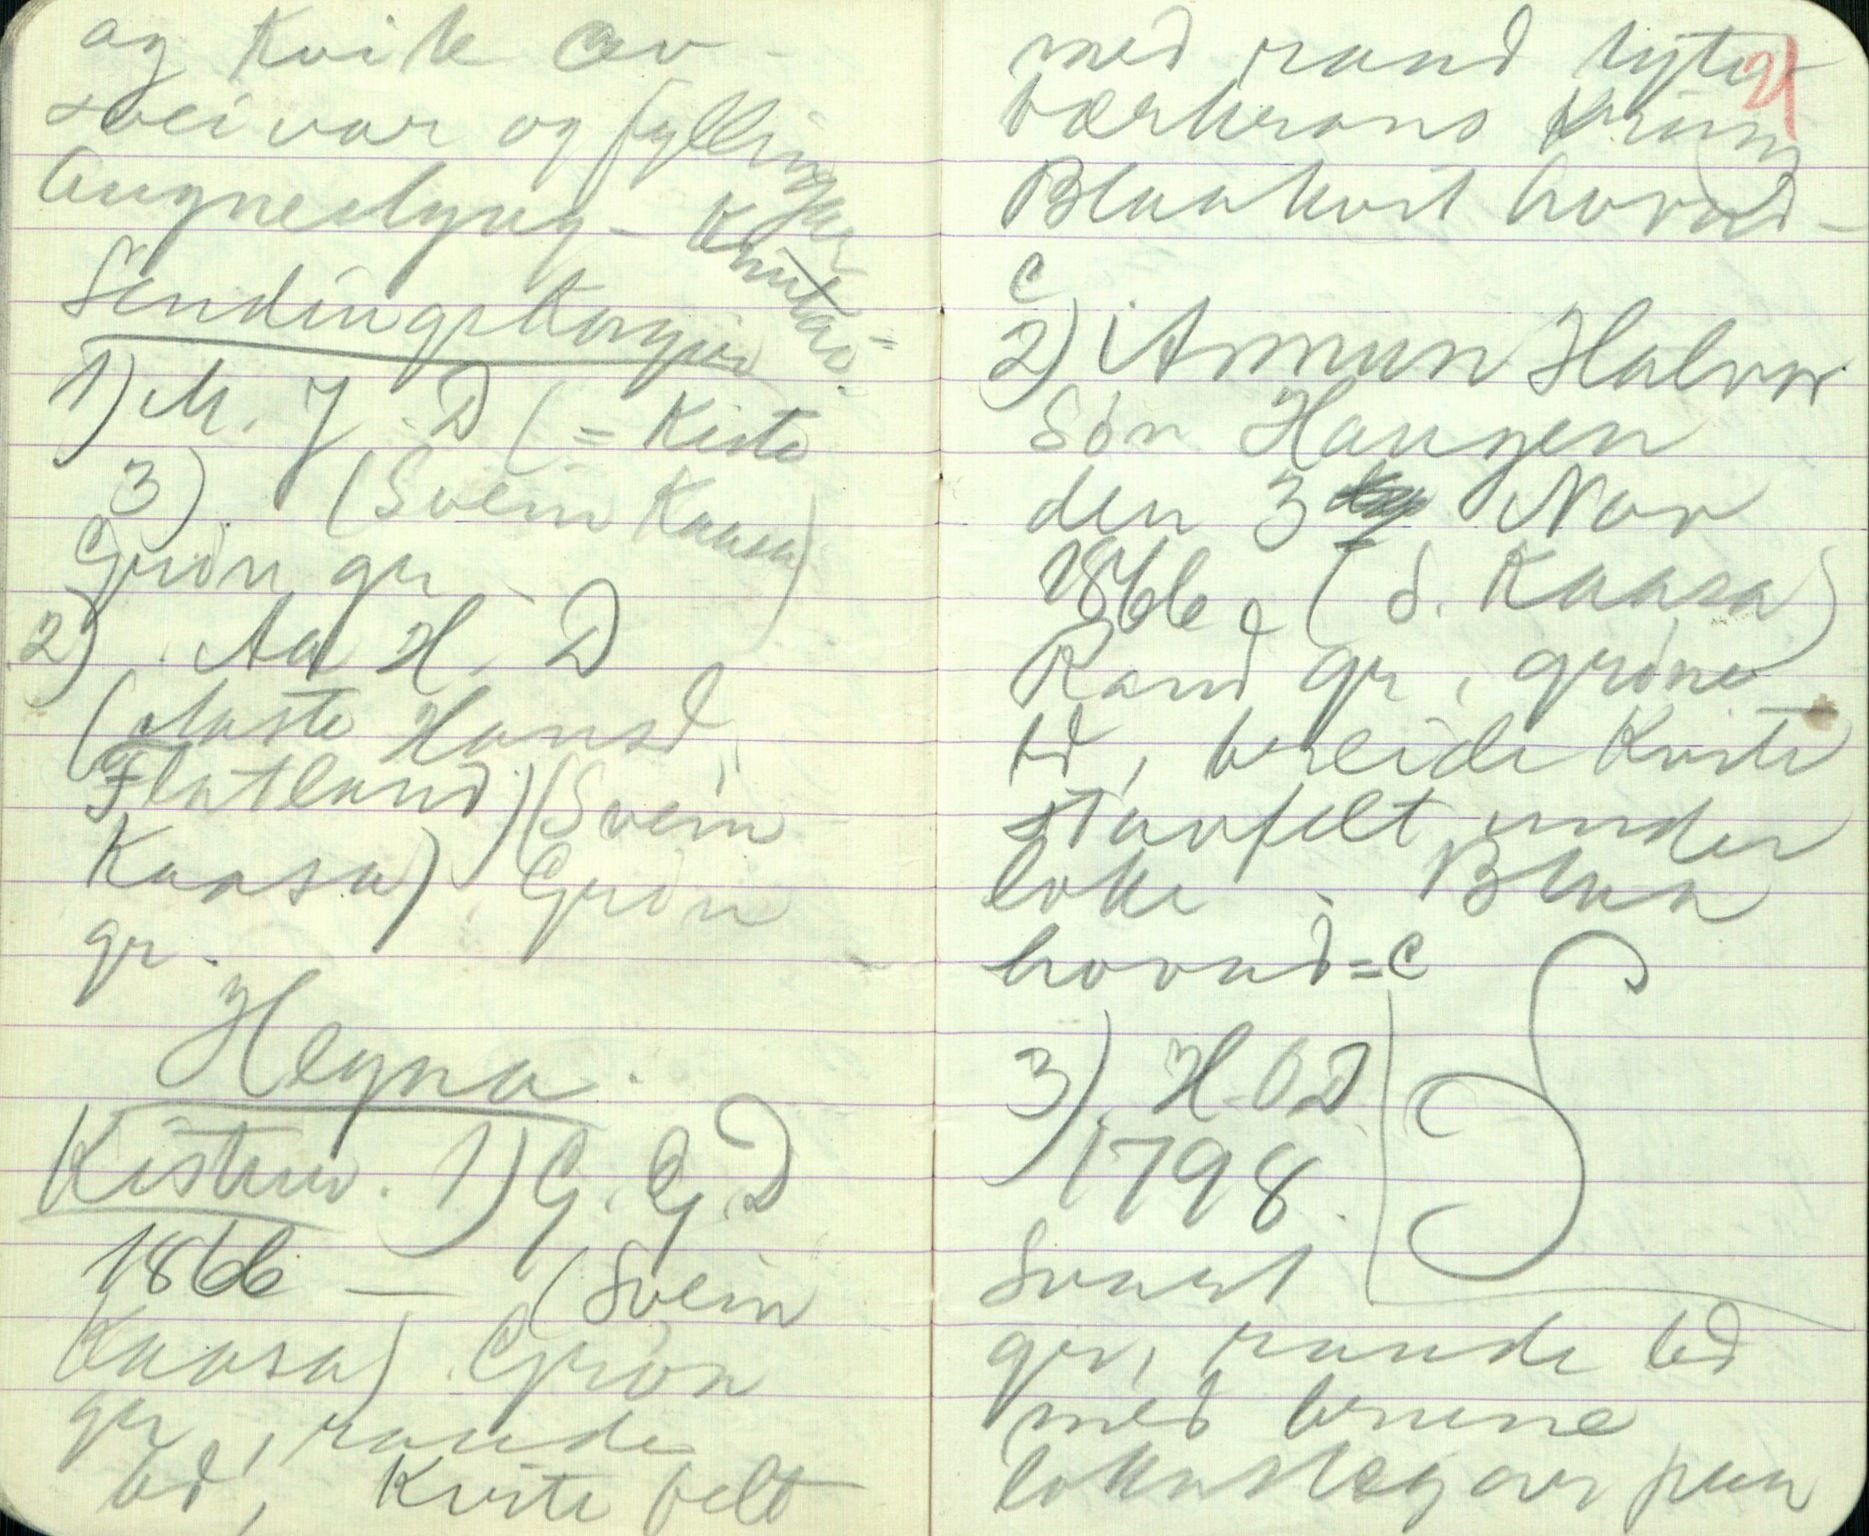 og kvite av-
sveivar og fyllingar
Augneslyng - Knutar=
Sendingskorger
1) M. J. D (= Kiste
3) (Svein Kaasa)
Grön gr
2) Aa H. D
(Aaste Hansd.
Flatland) (Svein
Kaasa) Grön
gr.
Heyna.
Kistur. 1) G. G. D
1866 — (Svein
Kaasa) Grön
gr, raude
bd, kvite felt
med raud
bærkrans
Blaakvit hovud -
21
c
2) Amun Halvor
Són Haugen
den 3 Nov
1866 (S. Kaasa)
Raud gr, gröne
bd, breide kvite
stavfelt under
loke. Blaa
hovud = c
3) H. O D
1798.
Svart
gr, raude bd
med brune
lokastegar paa